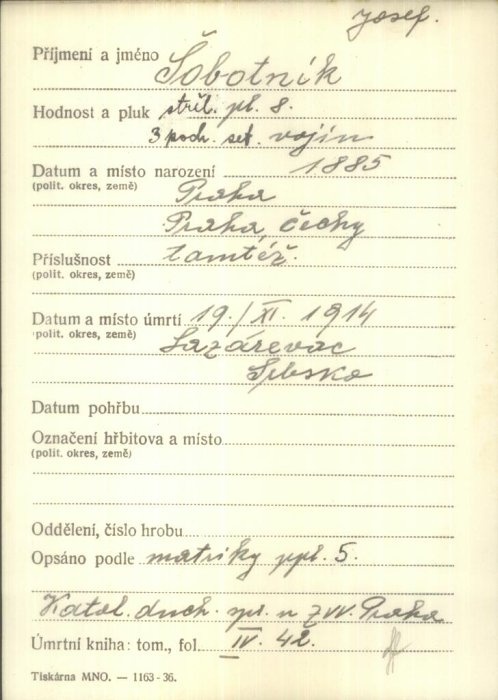 Josef.
Příjmení a jméno Šobotník
Hodnost a pluk střel. pl. 8.
3 poch. set. vojín
Datum a místo narození 1885
(polit. okres, země) Praha
Praha, Čechy
Příslušnost tamtéž.
(polit. okres, země)
Datum a místo úmrtí 19./XI. 1914
(polit. okres, země) Lazárevac
Srbsko
Datum pohřbu
Označení hřbitova a místo
(polit. okres, země)
Oddělení, číslo hrobu
Opsáno podle matriky ppl. 5.
Katol. duch. spr. u ZVV. Praha
Úmrtní kniha: tom., fol. IV. 42.
Tiskárna MNO. — 1163-36.